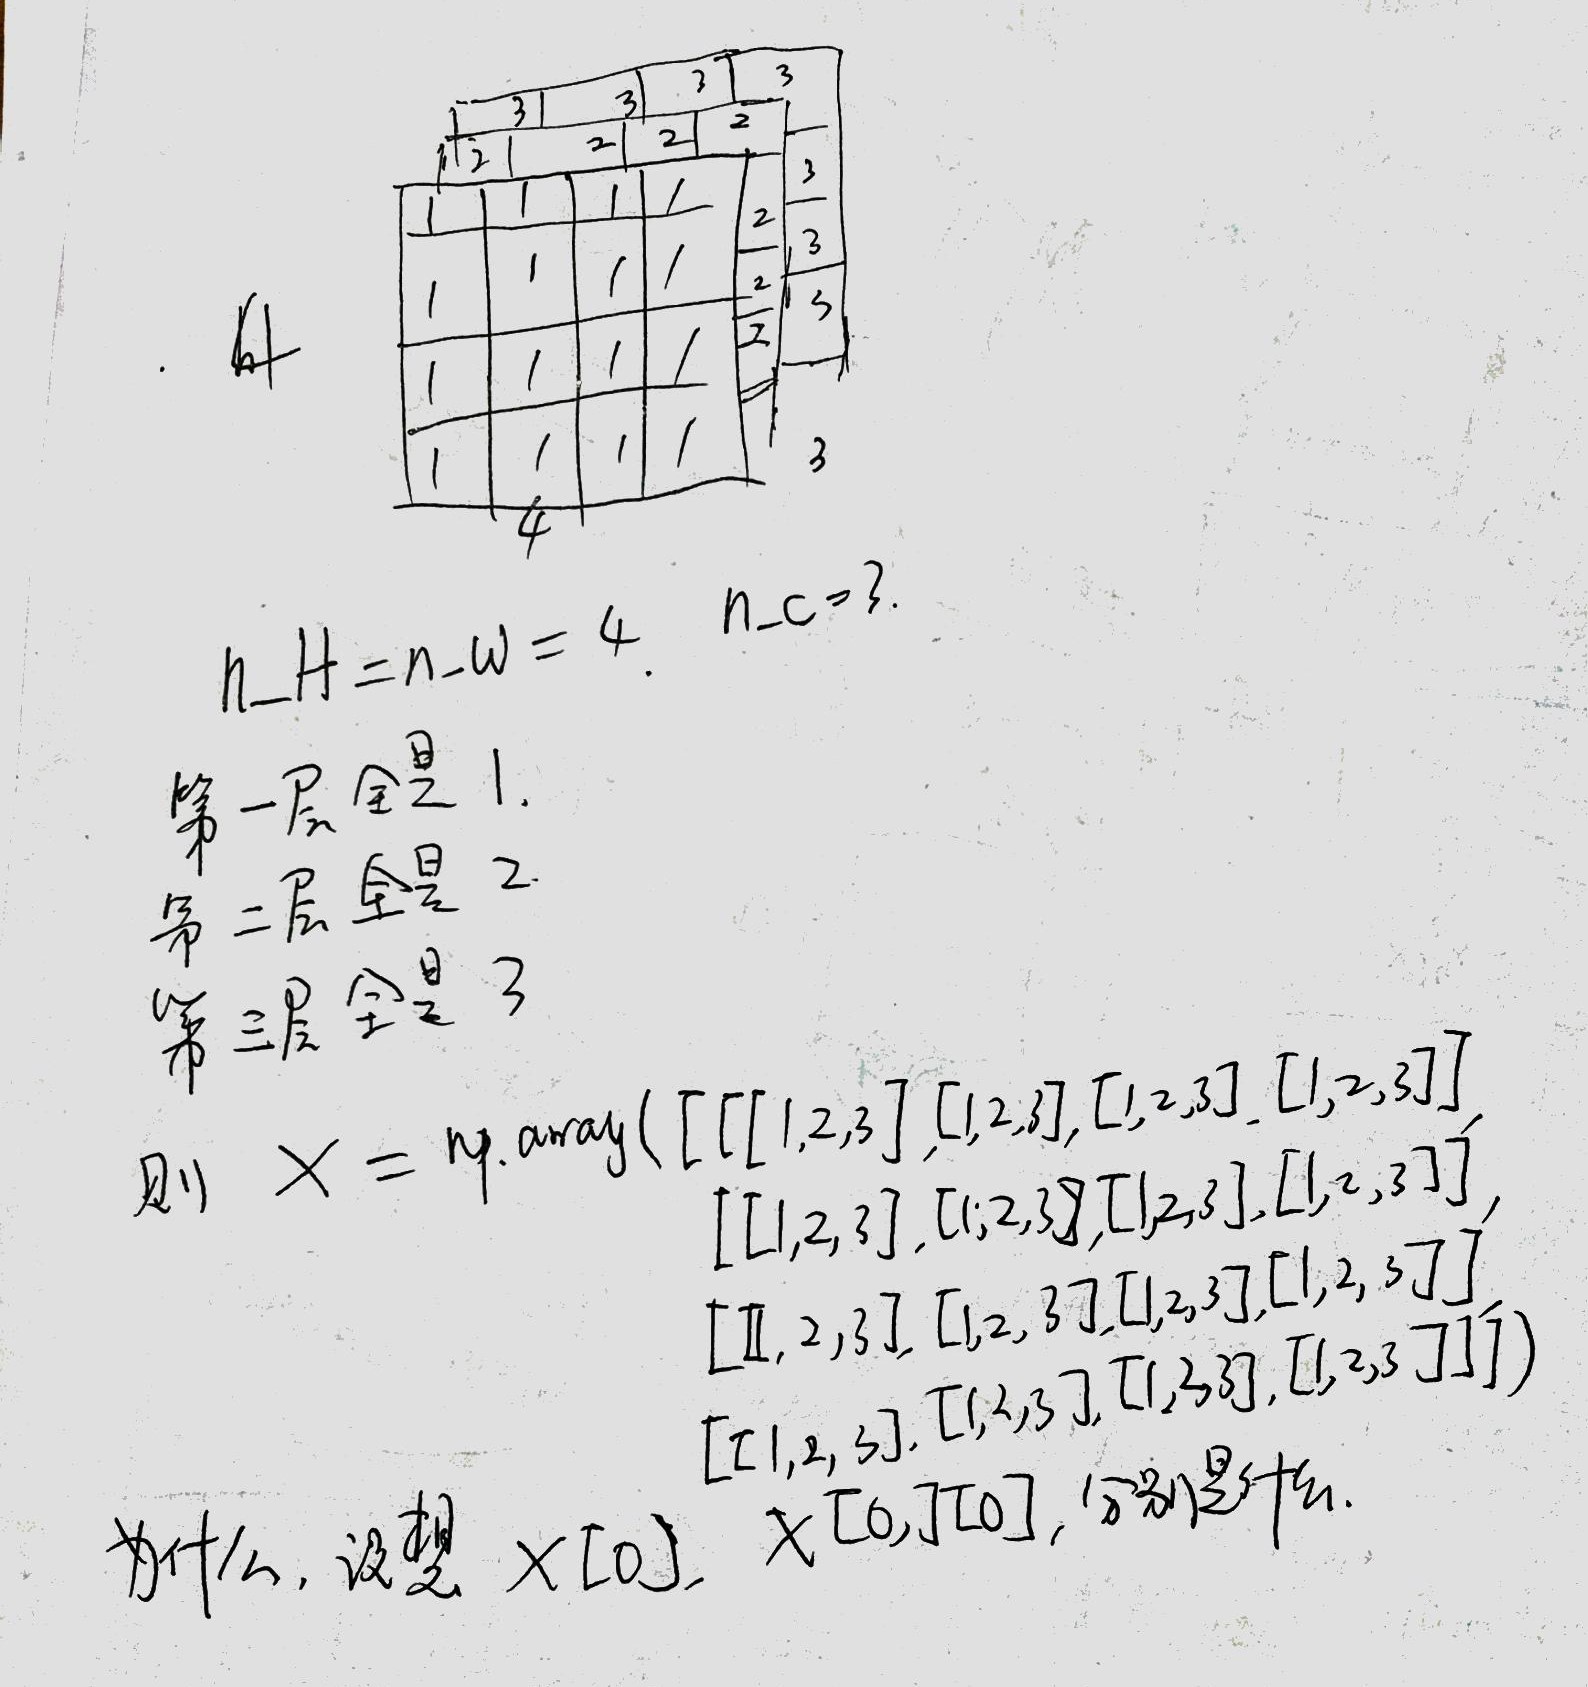 3 3 3 3
2 2 2 2
1 1 1 1
3
2
1 1 1 1
3
2
3
2
1 1 1 1
1 1 1 1
4
3
4
n_H = n_W = 4. n_c = 3.
第一层全是 1.
第二层全是 2.
第三层全是 3
则 X = np.array([[[1,2,3],[1,2,3],[1,2,3],[1,2,3]],
[[1,2,3],[1,2,3],[1,2,3],[1,2,3]],
[[1,2,3],[1,2,3],[1,2,3],[1,2,3]],
[[1,2,3],[1,2,3],[1,2,3],[1,2,3]]])
为什么, 设想 X[0], X[0,][0], 分别是什么.